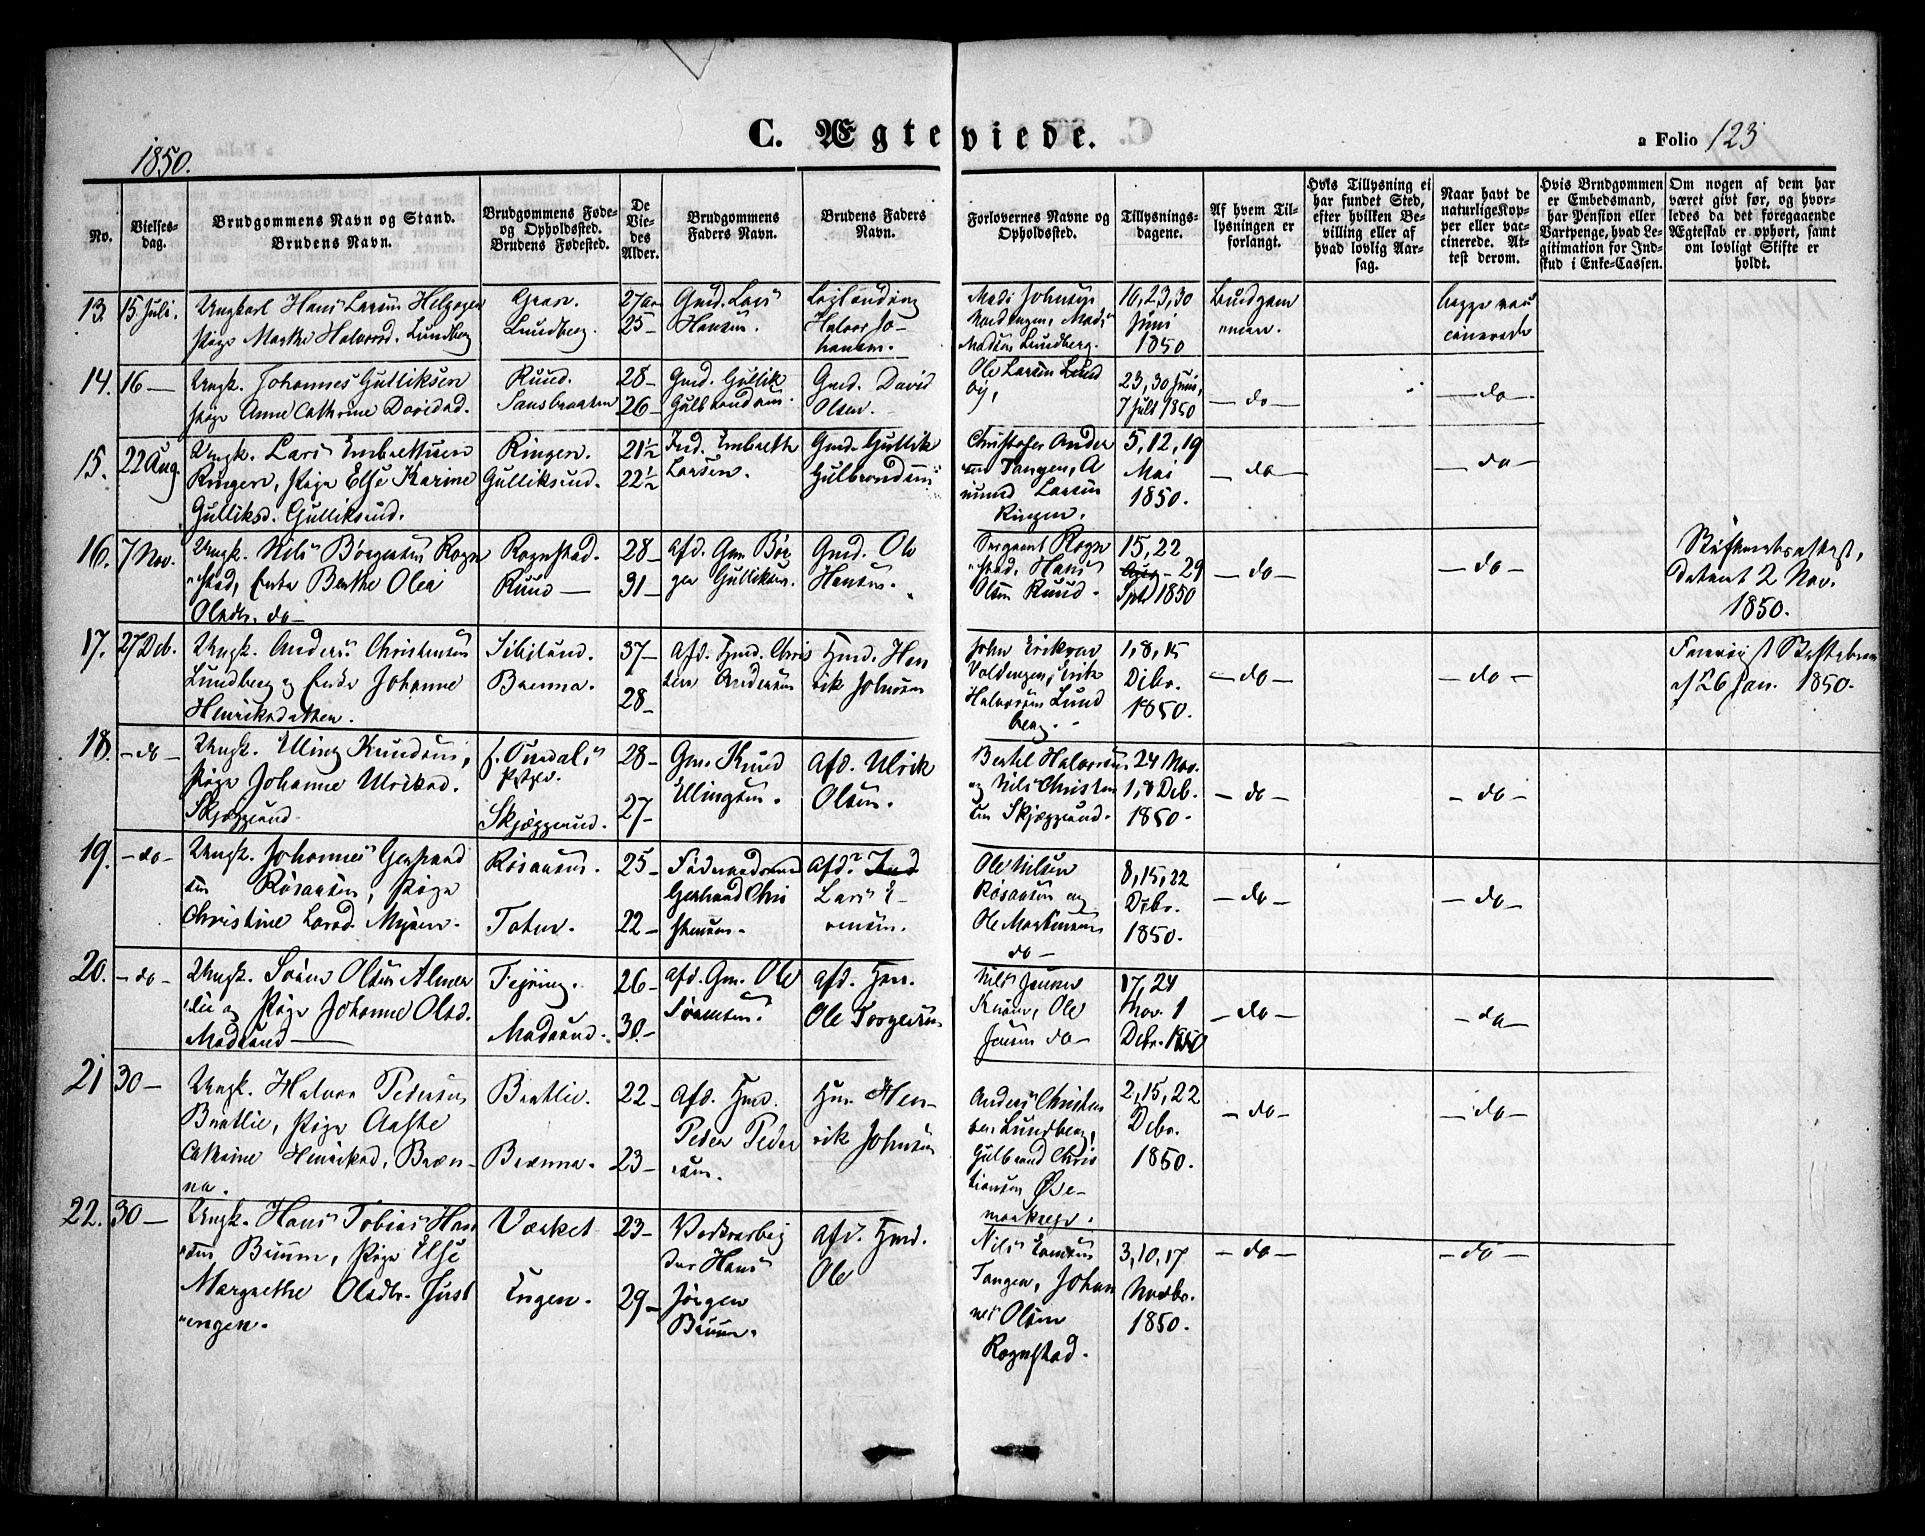 C. Ægteviede.
a Folio 123
1850.
No.
Vielses-
dag.
Brudgommens Navn og Stand.
Brudens Navn.
Brudgommens Føde-
og Opholdssted.
Brudens Fødested.
De
Vie-
des
Alder.
Brudgommens
Faders Navn.
Brudens Faders
Navn.
Forlovernes Navne og
Opholdssted.
Tillysnings-
dagene.
Af hvem Til-
lysningen er
forlangt.
Hvis Tillysning ei
har fundet Sted,
efter hvilken Be-
villing eller af
hvad lovlig Aar-
sag.
Naar havt de
naturlige Kop-
per eller vac-
cinerede. At-
test derom.
Hvis Brudgommen
er Embedsmand,
har Pension eller
Vartpenge, hvad Le-
gitimation for Ind-
skud i Enke-Cassen.
Om nogen af dem har
været givt før, og hvor-
ledes da det foregaaende
Ægteskab er ophørt, samt
om lovligt Skifte er
holdt.
13. 15 Juli.
Ungkarl Hans Larsen
Pige Marthe Halvorsd. Lundberg
Lundberg.
27
25 -
Gmd. Lars
Hansen.
Halvor Jo-
hansen.
Madsen Lundberg.
16, 23, 30
Juni
1850
Brudgom-
men.
begge vac
cinerede
14. 16 -
Ungk. Johannes Gulliksen
Pige Anne Cathrine Davidsd.
Ruud.
28 -
26 -
Gmd. Gullik
Gulbrandsen.
Gmd. David
Olsen.
Ole Larsen Lund
by,
23, 30 Juni,
7 Juli 1850
- do -
- do -
15. 22 Aug.
Ungk. Lars Embrettsen
Ringen, Pige Else Karine
Gulliksd. Gulliksrud.
Ringen.
Gulliksrud.
21½
22½
Embreth
Larsen.
Gmd. Gullik
Gulbrandsen
Christofer Ander
sen Tangen, A
mund Larsen
Ringen.
5, 12, 19
Mai
1850.
- do -
- do -
16. 7 Nov.
Ungk. Nils Børgersen Rogn
stad, Enke Berthe Olea
Olsdtr. do -
Rognstad.
Ruud -
28 -
31 -
Afd. Gm Bør
ger Gulliksen.
Gmd. Ole
Hansen.
Sergeant Rogn
stad, Hans
Olsen Ruud.
15, 22
- 29
Sept 1850
- do -
- do -
Skifteretsattest,
dateret 2 Nov.
1850.
17. 27 Deb.
Ungk. Anders Christensen
Lundberg og Enke Johanne
Henriksdatter.
Brenna.
37 -
28 -
Afd. Hmd. Chri
sten Andersen
Hmd. Hen
rik Johnsen
John Eriksen
Voldengen, Erik
Halvorsen Lund
berg.
1, 8, 15
Dcbr.
1850.
- do -
- do -
af 26 Jan. 1850.
18. - do -
Ungk. Elling Knudsen,
Pige Johanne Ulriksd.
Skjæggerud
Skjæggerud.
28 -
27 -
Gm. Knud
Ellingsen.
Afd. Ulrik
Olsen.
Bertel Halvorsen
og Nils Christen
sen Skjæggerud.
24 Nov.
1, 8 Deb.
1850.
- do -
- do -
19. - do -
Ungk. Johannes Gerhard
sen Røsaasen, Pige
Christine Larsd. Myren.
Røsaasen.
Toten.
25 -
22 -
Gerhard Chri
stensen.
Afd.
Lars E-
Ole Nilsen
Røsaasen og
Ole Mortensen
do -
8, 15, 22
Dcbr.
1850.
- do -
- do -
20. - do -
Ungk. Søren Olsen Almer
lie og Pige Johanne Olsd.
Madsrud -
Fejring.
Madsrud.
26 -
30 -
Afd. Gm. Ole
Sørensen.
Afd. Hm.
Ole Torgersen
Nils Jensen
Ole
Jensen do -
17, 24
Nov. 1
Debr. 1850
- do -
- do -
21 30 -
Ungk. Halvor Pedersen
Bratlie, Pige Aaste
Cathrine Henriksd. Bren-
na.
Bratlie.
Brenna.
22 -
23 -
Afd. Hmd.
Peder Peder
sen.
Hm. Hen-
rik Johnsen
Anders Christen
sen Lundberg,
Gulbrand Chris
tiansen Øde-
2, 15, 22
Debr.
1850.
- do -
- do -
22. 30 -
Ungk. Hans Tobias Han
sen Bruun, Pige Else
Margrethe Olsdtr.
engen.
Værket
Engen.
23 -
29 -
Verksarbej
der Hans
Jørgen
Bruun.
Afd. Hmd.
Ole
Nils
Tangen, Johan
nes Olsen
Rognstad.
3, 10, 17
Novbr.
1850.
- do -
- do -